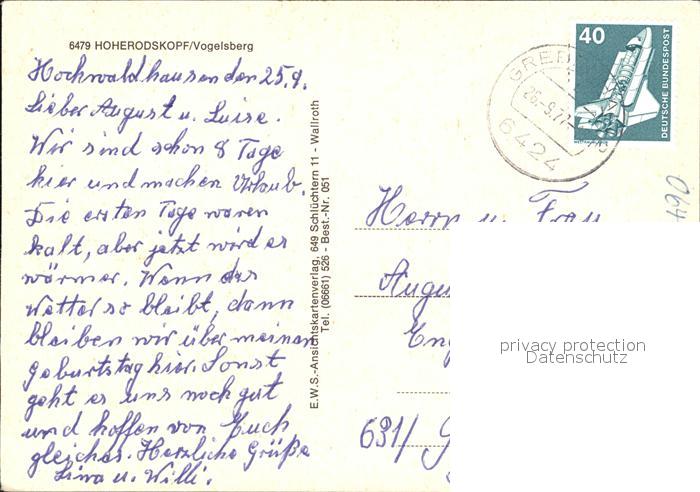 6479 HOHERODSKOPF/Vogelsberg
Hochwaldhausen den 25.9.
Lieber August u. Luise.
Wir sind schon 8 Tage
hier und machen Urlaub.
Die ersten Tage waren
kalt, aber jetzt wird es
wärmer. Wenn das
Wetter so bleibt, dann
bleiben wir über meinen
Geburtstag hier. Sonst
geht es uns noch gut
und hoffen von Euch
gleiches. Herzliche Grüße
u. Willi.
E.W.S.-Ansichtskartenverlag, 649 Schlüchtern 11 - Wallroth
Tel. (06661) 526 - Best.-Nr. 051
40
DEUTSCHE BUNDESPOST
GREB
26.-9.77
6424
064
Herrn u. Frau
Augu
Eng
631/ G
privacy protection
Datenschutz